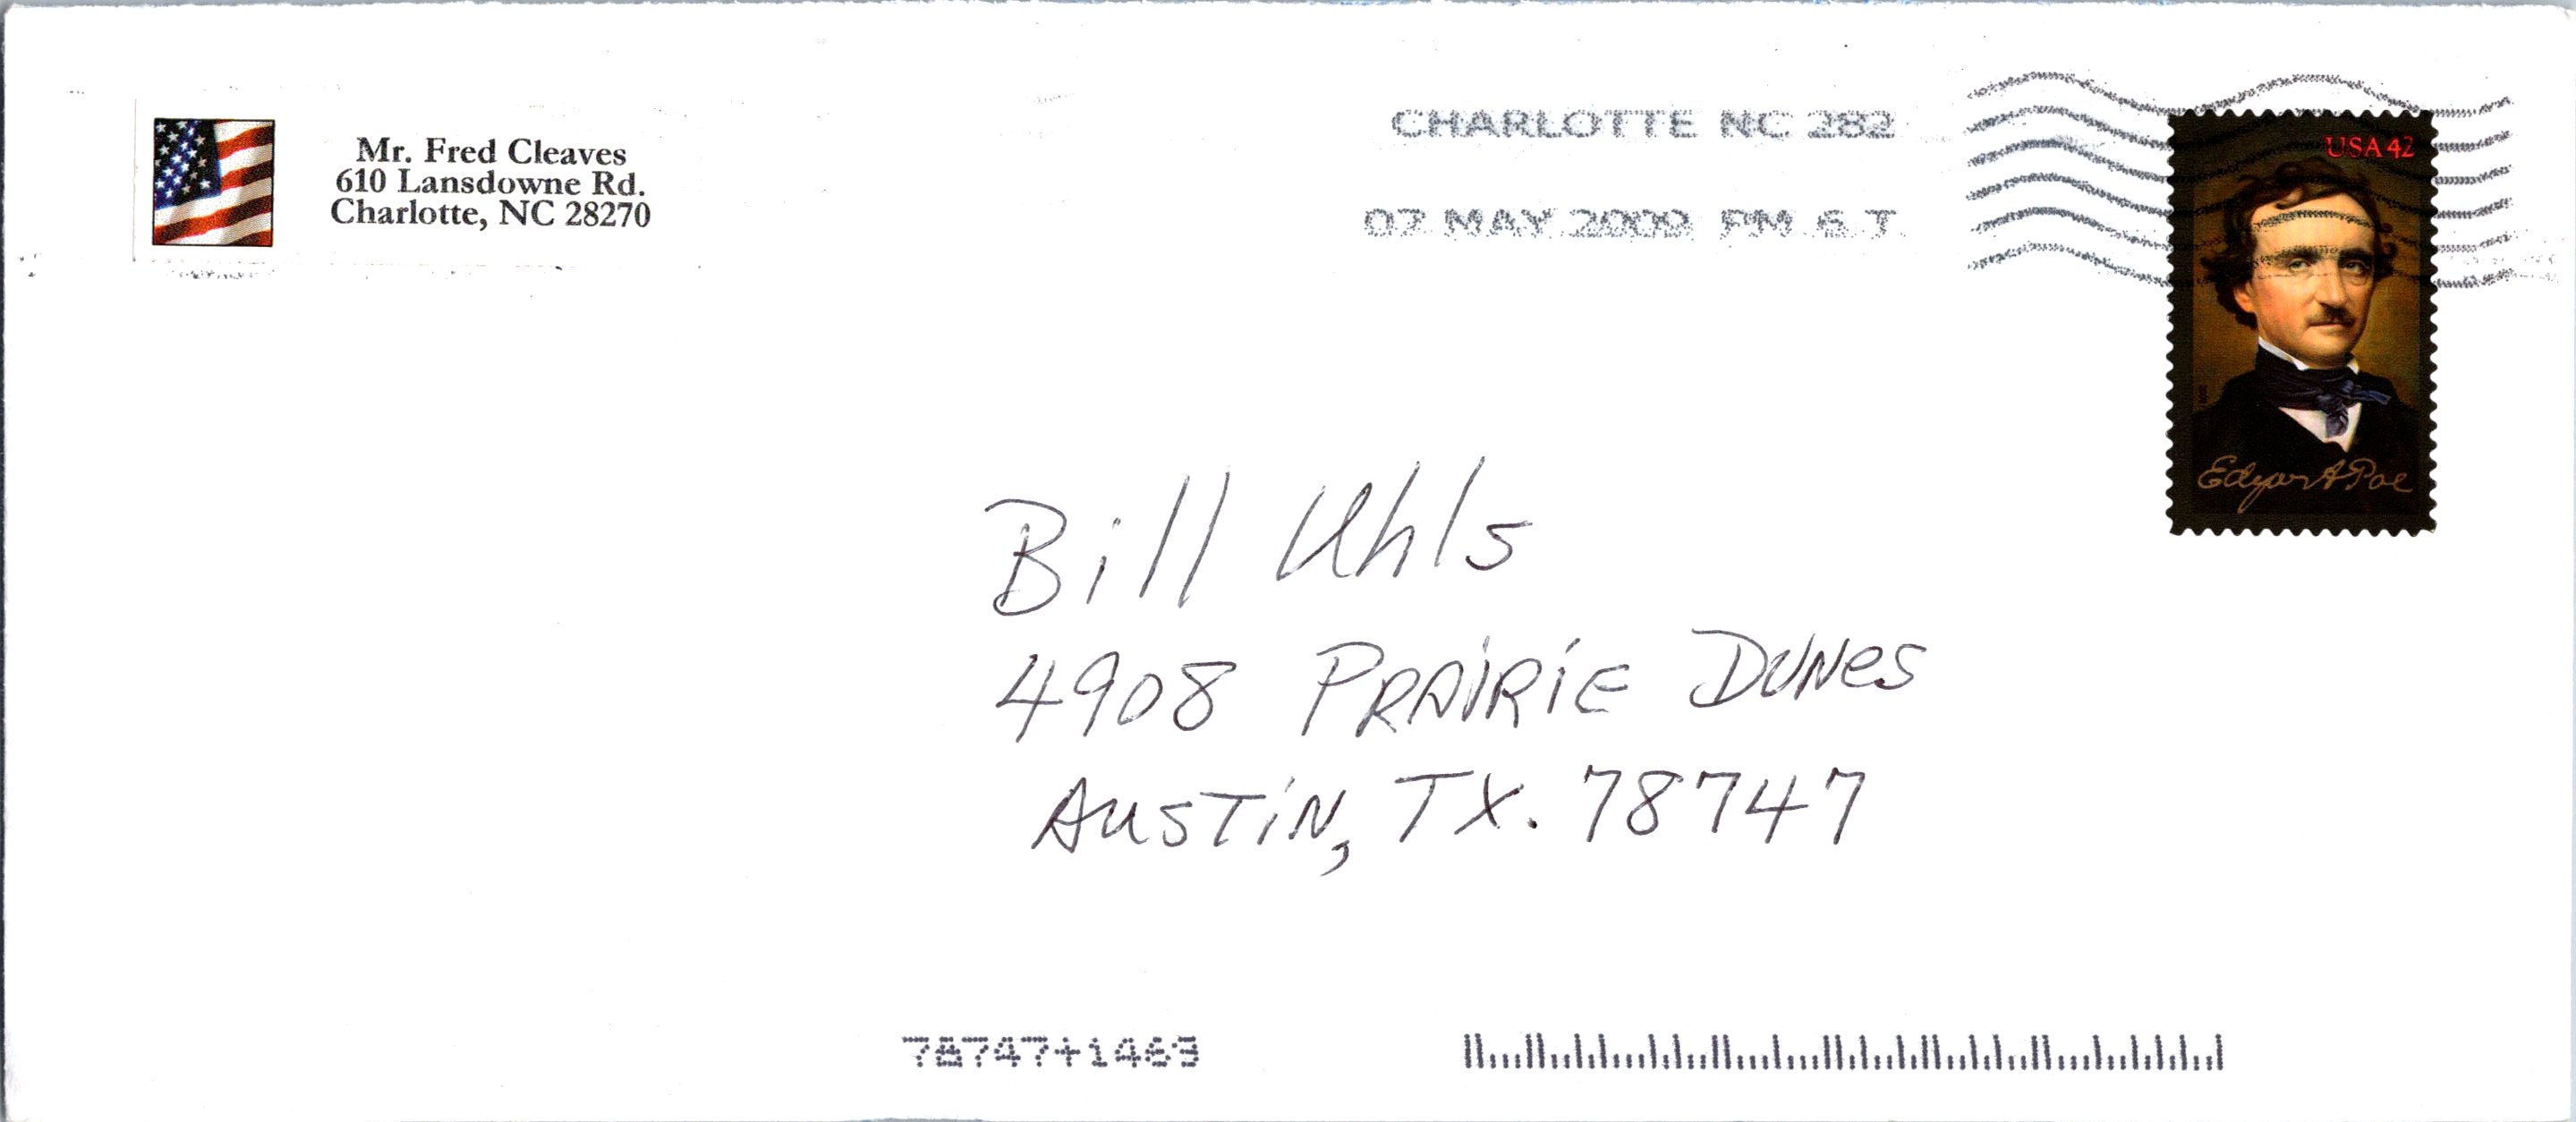 Mr. Fred Cleaves
610 Lansdowne Rd.
Charlotte, NC 28270
CHARLOTTE NC 282
07 MAY 2009 PM 6 T
USA 42
Edgar A Poe
Bill Uhls
4908 PRAIRIE DUNES
AUSTIN, TX. 78747
78747+1469